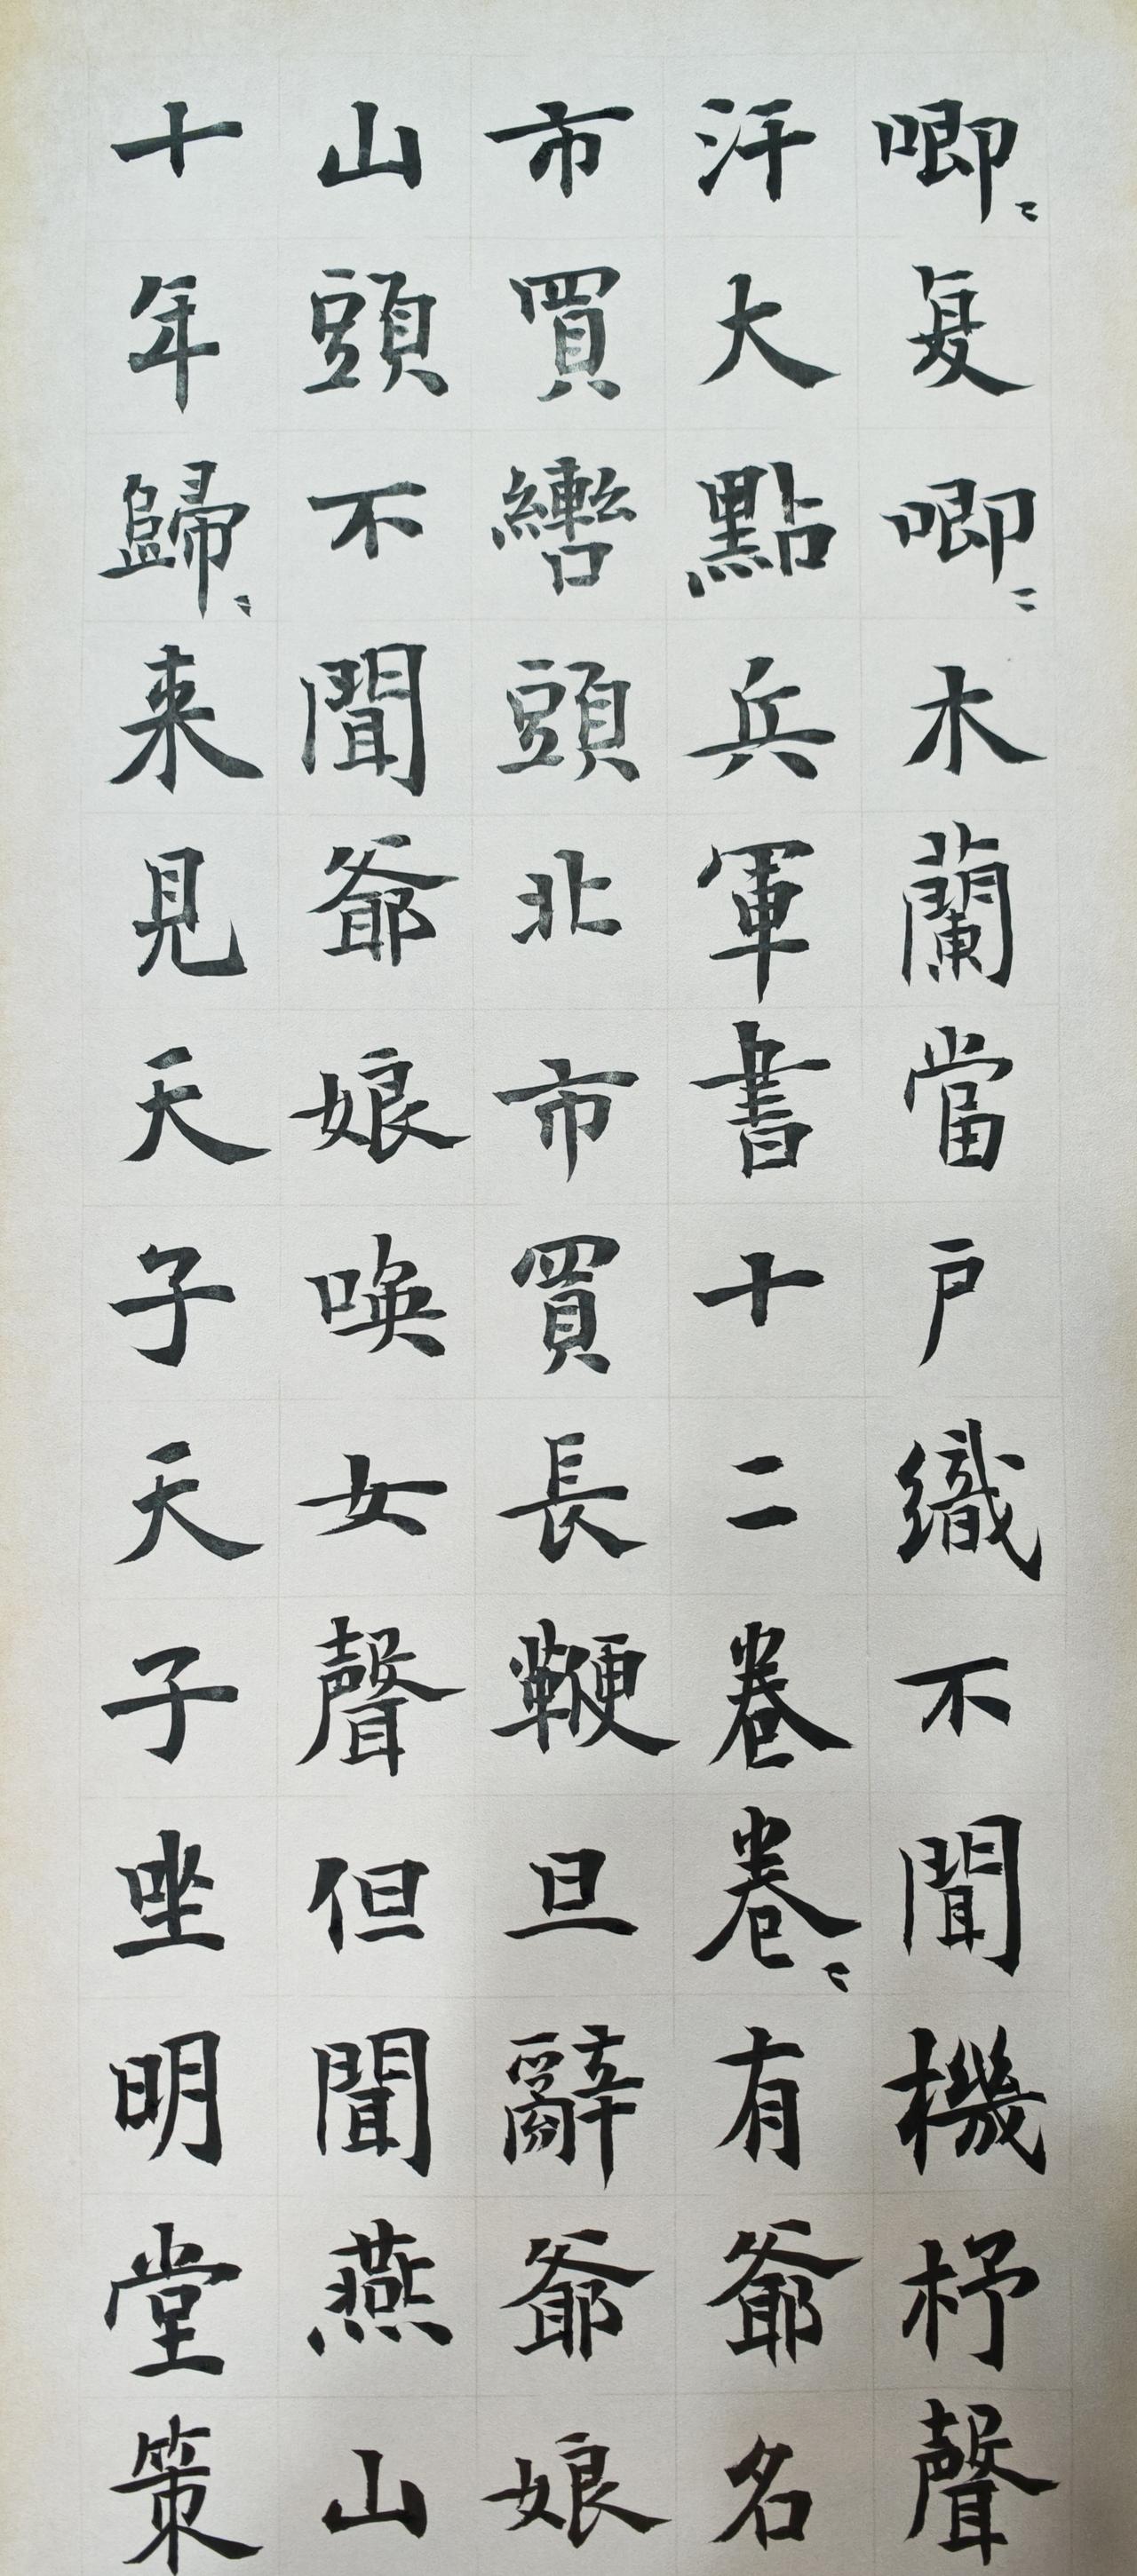 唧〻复唧〻木蘭當戸織不聞機杼聲
汗大點兵軍書十二卷卷〻有爺名
市買轡頭北市買長鞭旦辭爺娘
山頭不聞爺娘喚女聲但聞燕山
十年歸〻来見天子天子坐明堂策